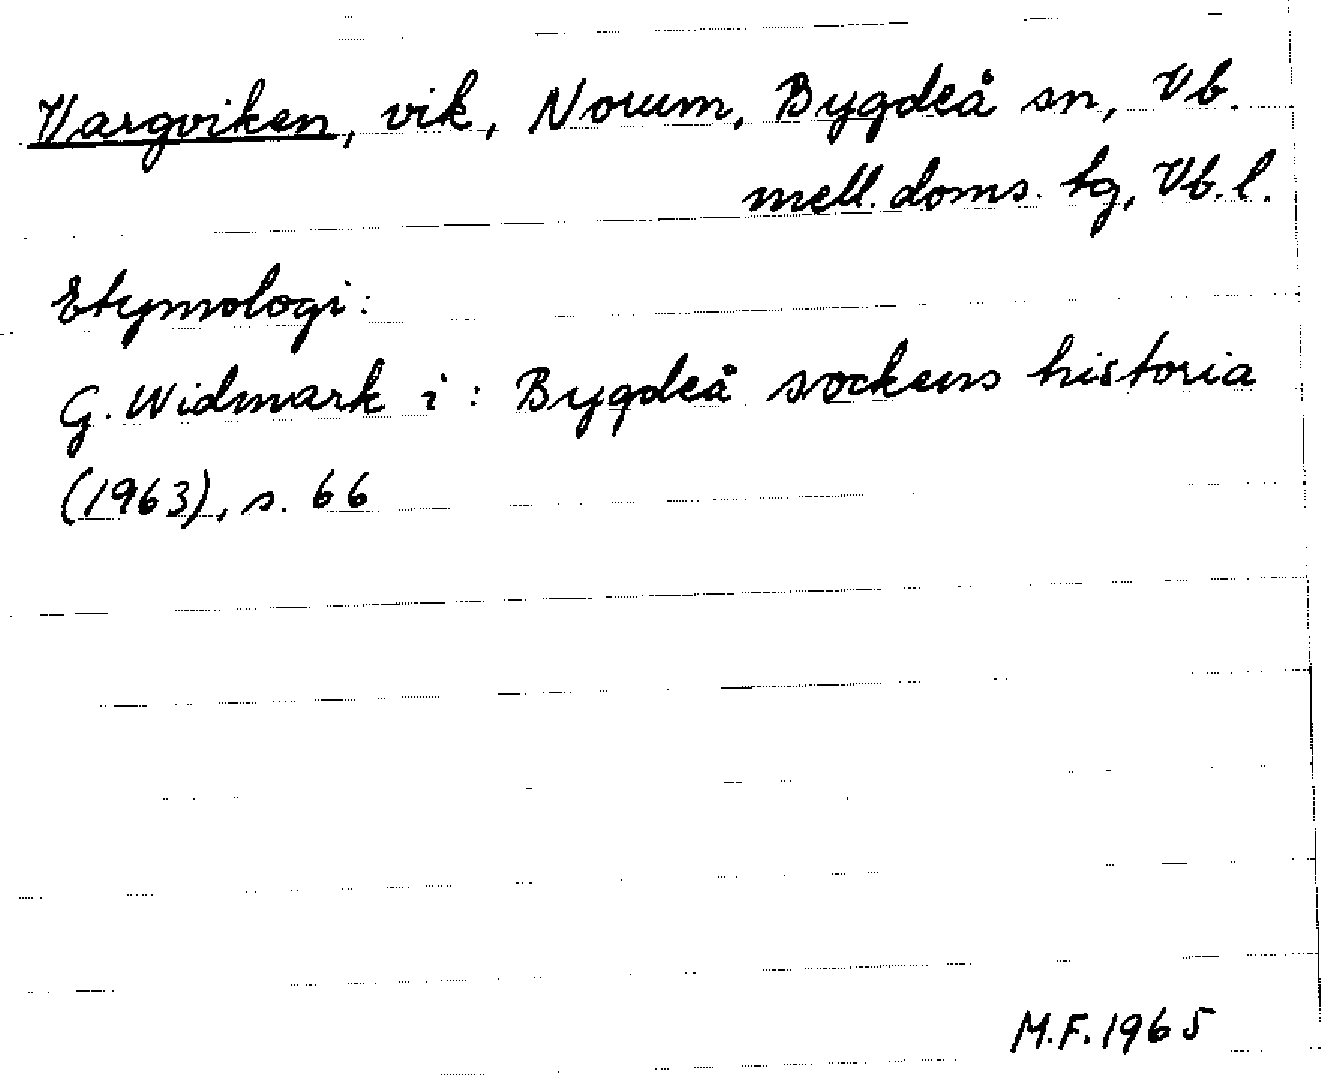 Vargviken, vik, Norum, Bygdeå sn, Vb.
mell. doms. tg, Vb. l.
Etymologi:
G. Widmark i: Bygdeå sockens historia
(1963), s. 66
M.F. 1965